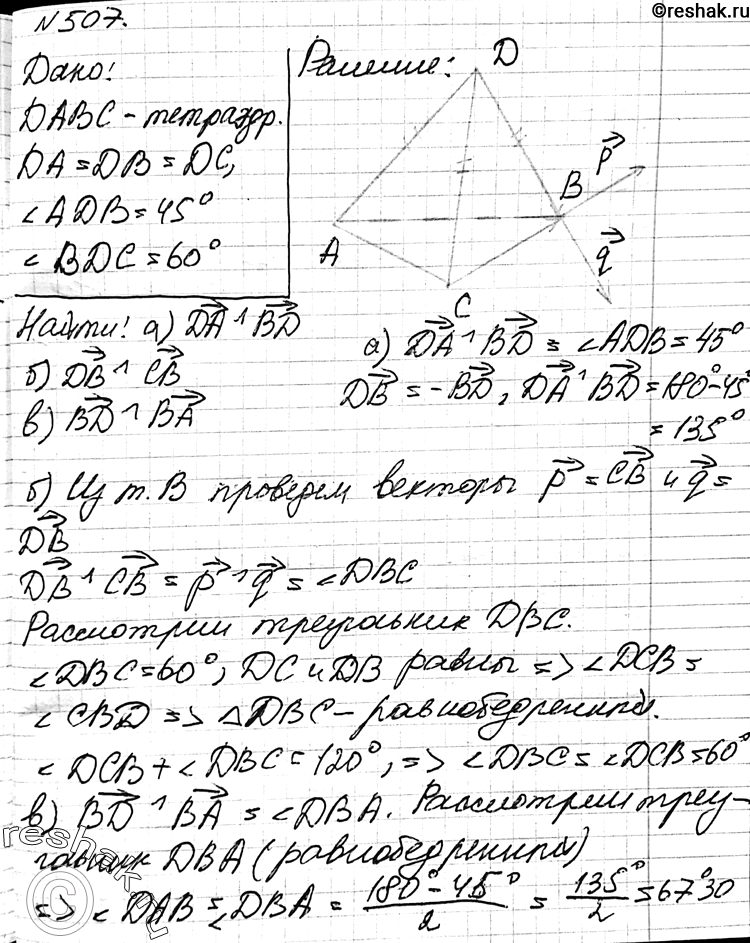 ©reshak.ru
№507.
Дано:
DABC - тетраэдр.
DA = DB = DC,
∠ADB = 45°
∠BDC = 60°
Решение:
D
A
B
C
p⃗
q⃗
Найти: а) DA⃗ ^ BD⃗
б) DB⃗ ^ CB⃗
в) BD⃗ ^ BA⃗
а) DA⃗ ^ BD⃗ = ∠ADB = 45°
DB⃗ = -BD⃗, DA⃗ ^ BD⃗ = 180° - 45°
= 135°
б) Из т. В проведем векторы p⃗ = CB⃗ и q⃗ =
DB⃗
DB⃗ ^ CB⃗ = p⃗ ^ q⃗ = ∠DBC
Рассмотрим треугольник DBC.
∠DBC = 60°, DC и DB равны => ∠DCB =
∠CBD => △DBC - равнобедренный.
∠DCB + ∠DBC = 120°, => ∠DBC = ∠DCB = 60°
в) BD⃗ ^ BA⃗ = ∠DBA. Рассмотрим треу-
гольник DBA (равнобедренный)
=> ∠DAB = ∠DBA = (180° - 45°)/2 = 135°/2 = 67°30
reshak.ru